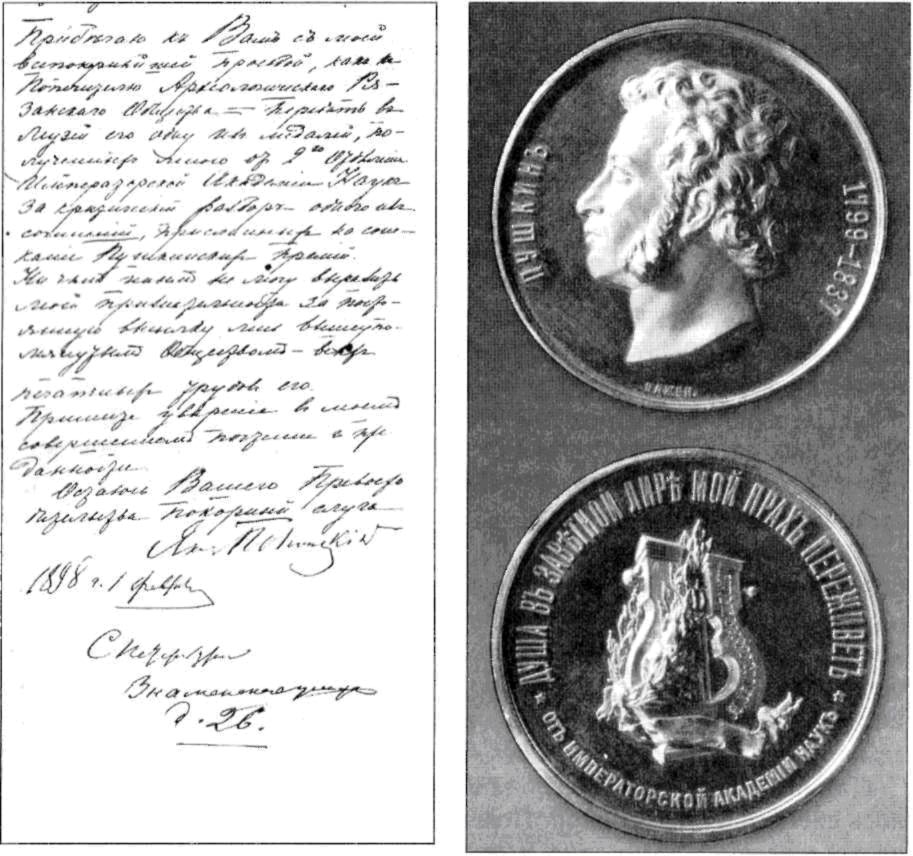 Прибѣгаю къ Вамъ съ моей
всепокорнѣйшей просьбой, какъ къ
Попечителю Археологическаго Ря-
занскаго Общества – передать въ
Музей его одну изъ медалей, по-
лученныхъ мною от 2го Отдѣленія
Императорской Академіи Наукъ
За критическій разборъ одного изъ
сочиненій, присланныхъ на соис-
каніе Пушкинской Преміи.
Ни чѣмъ инымъ не могу выразить
моей признательности за посто-
янную высылку мнѣ вышеупо-
мянутымъ Обществомъ – всѣхъ
печатныхъ трудовъ его.
Примите увѣреніе въ моемъ
совершенномъ почтеніи и пре-
данности.
Остаюсь Вашего Превосхо
дительства покорный слуга
Як. Полонскій
1898 г. 1 февраля
С Петербургъ
Знаменская улица
д. 26.
ПУШКИНЪ
1799-1837
ДУША ВЪ ЗАВѢТНОЙ ЛИРѢ МОЙ ПРАХЪ ПЕРЕЖИВЕТЪ
ОТЪ ИМПЕРАТОРСКОЙ АКАДЕМІИ НАУКЪ